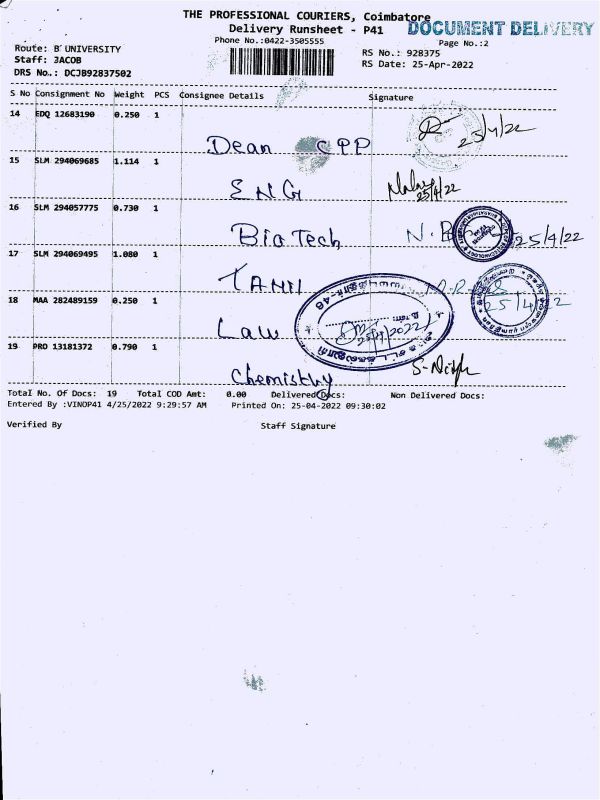 THE PROFESSIONAL COURIERS, Coimbatore
DOCUMENT DELIVERY
Delivery Runsheet - P41
Phone No.:0422-3505555
Page No.:2
Route: B UNIVERSITY
RS No.: 928375
Staff: JACOB
RS Date: 25-Apr-2022
DRS No.: DCJB92837502
S No Consignment No Weight PCS Consignee Details Signature
14 EDQ 12683190 0.250 1
Dean CPP 25/4/22
15 SLM 294069685 1.114 1
ENG 25/4/22
16 SLM 294057775 0.730 1
Bio Tech 25/4/22
17 SLM 294069495 1.080 1
TAMIL 25/4/22
18 MAA 282489159 0.250 1
Law 25/4/2022
19 PRD 13181372 0.790 1
Chemistry
Total No. Of Docs: 19 Total COD Amt: 0.00 Delivered Docs: Non Delivered Docs:
Entered By :VINOP41 4/25/2022 9:29:57 AM Printed On: 25-04-2022 09:30:02
Verified By Staff Signature